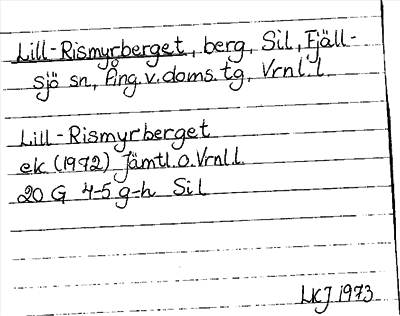 Lill-Rismyrberget, berg, Sil, Fjäll-
sjö sn, Ång.v.doms.tg, Vrnl.l.
Lill-Rismyrberget
ek. (1972) Jämtl.o.Vrnl.l.
20 G 4-5 g-h Sil
LKJ 1973